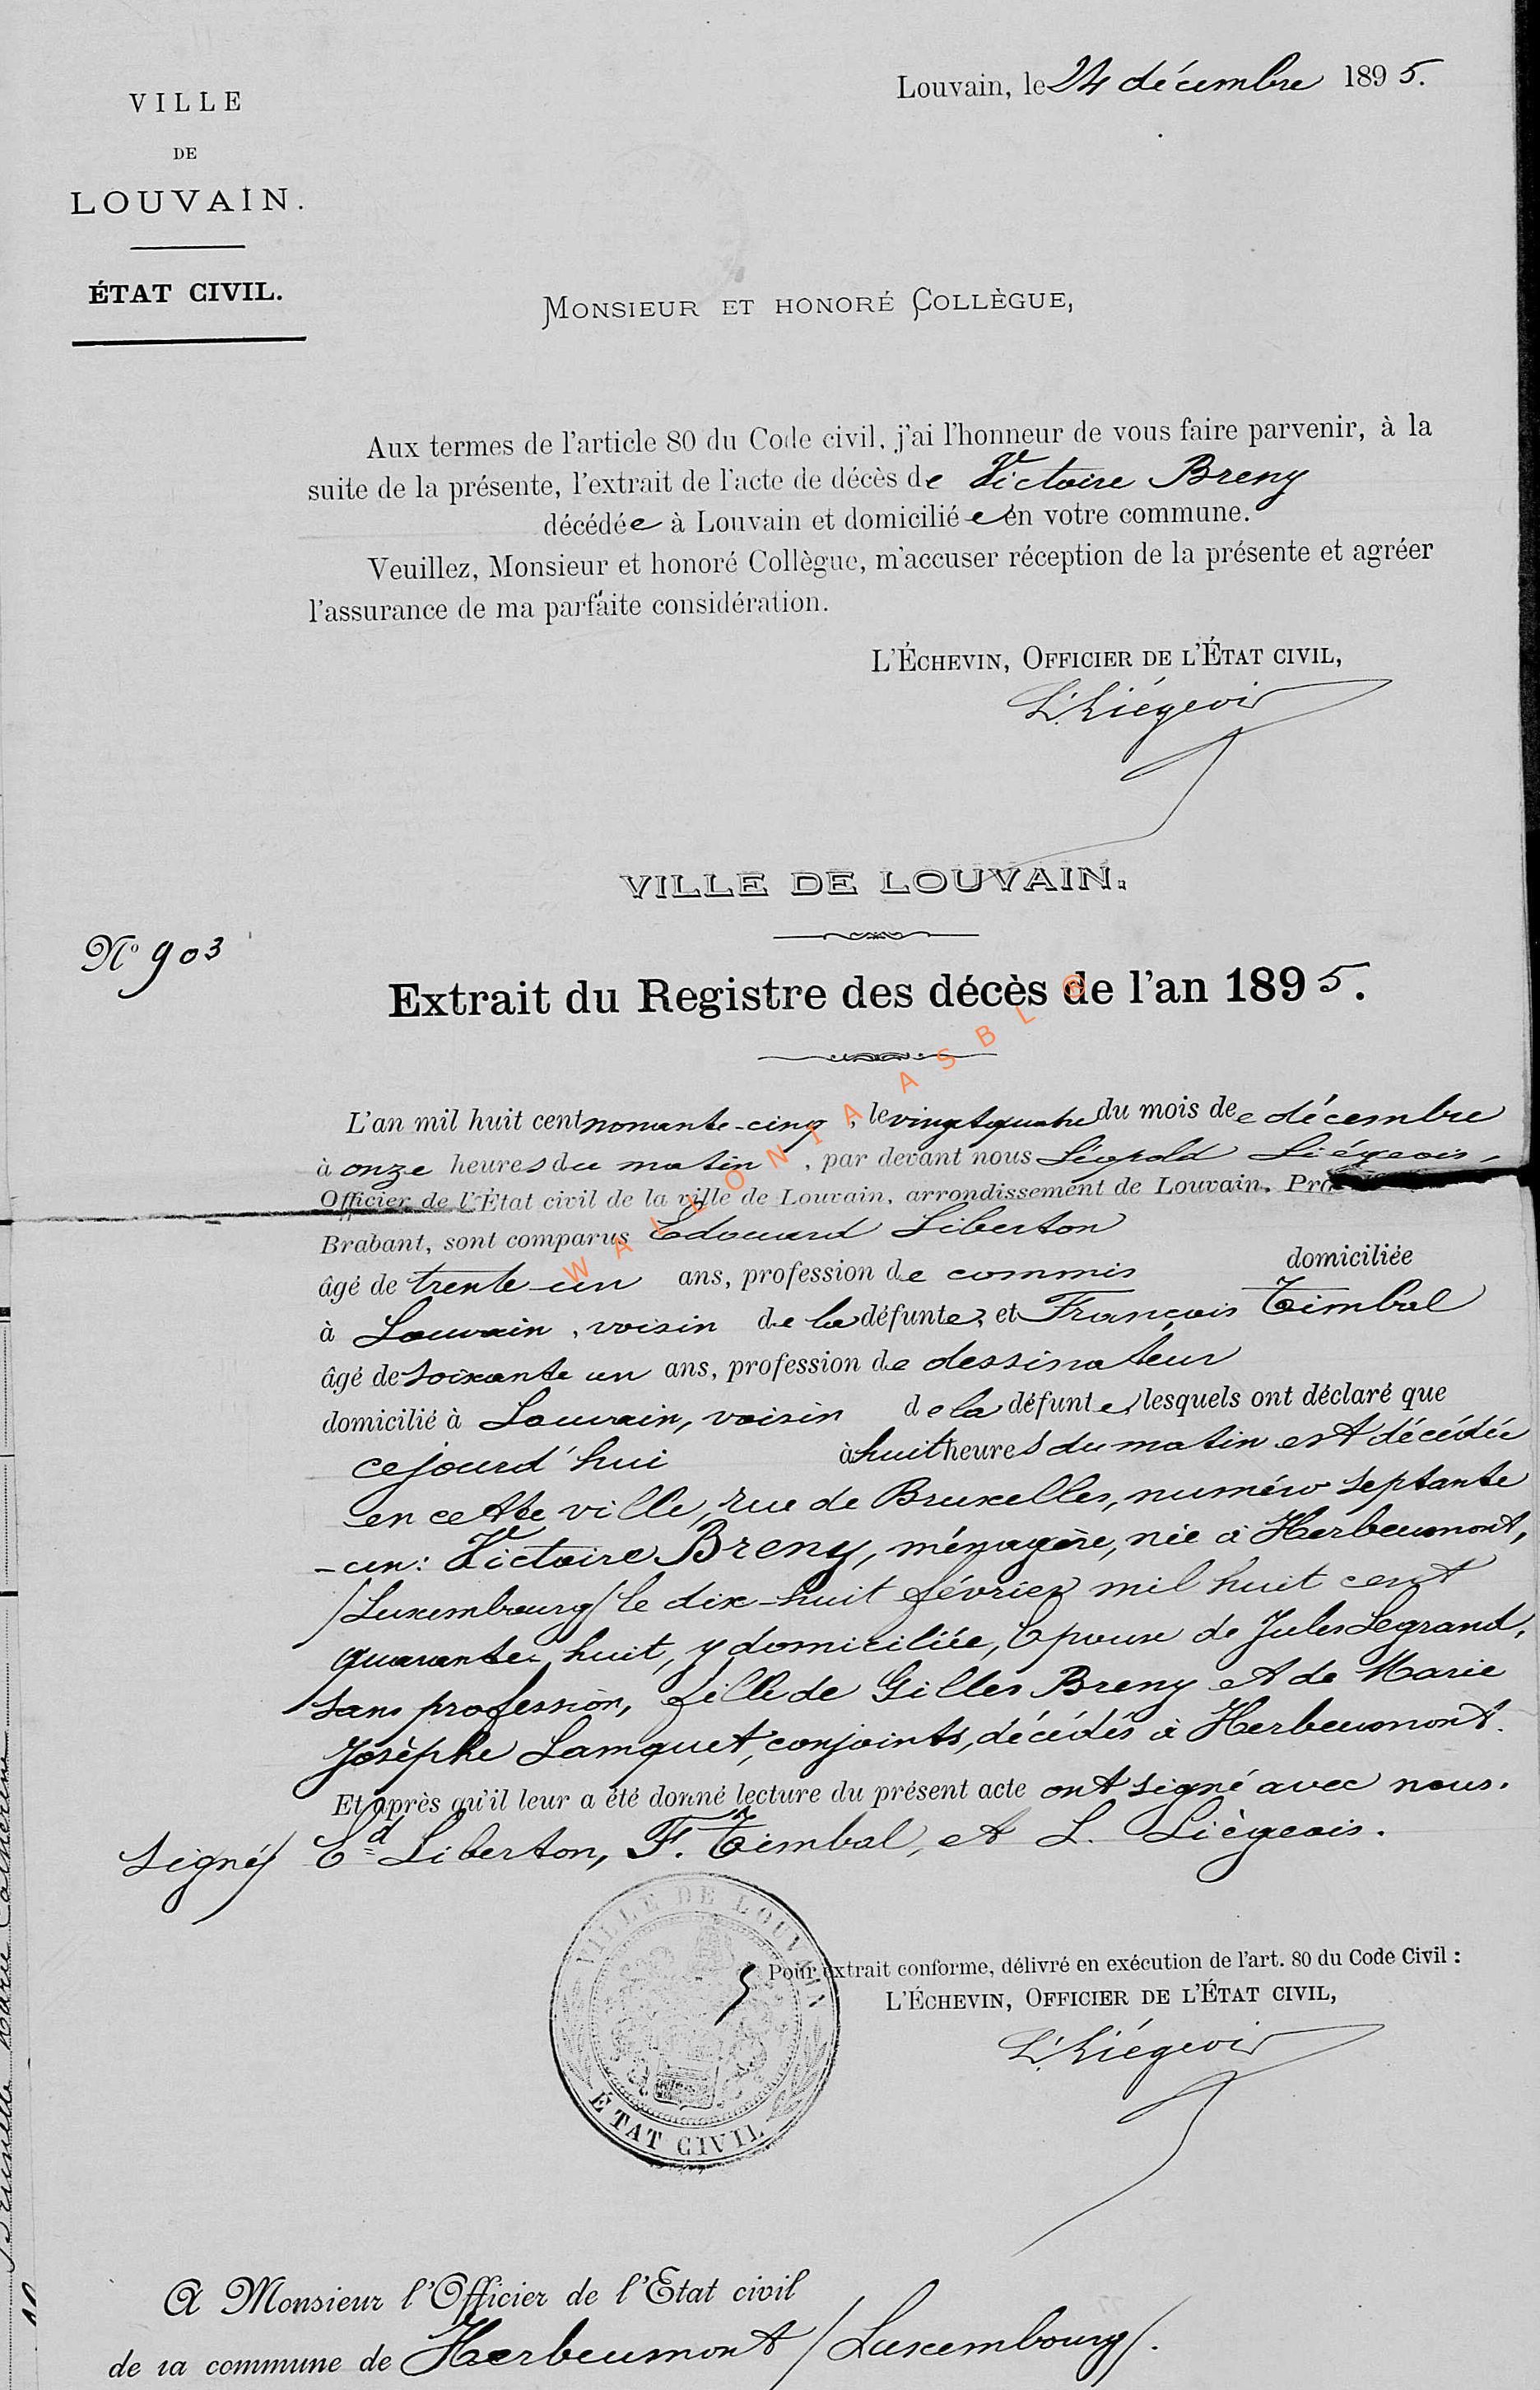 Louvain, le 24 décembre 1895.
VILLE
DE
LOUVAIN.
ÉTAT CIVIL.
MONSIEUR ET HONORÉ COLLÈGUE,
Aux termes de l'article 80 du Code civil, j'ai l'honneur de vous faire parvenir, à la
suite de la présente, l'extrait de l'acte de décès de Victoire Breny
décédée à Louvain et domiciliée en votre commune.
Veuillez, Monsieur et honoré Collègue, m'accuser réception de la présente et agréer
l'assurance de ma parfaite considération.
L'ÉCHEVIN, OFFICIER DE L'ÉTAT CIVIL,
L. Liégeois
VILLE DE LOUVAIN.
N° 903
Extrait du Registre des décès de l'an 1895.
L'an mil huit cent nonante-cinq, le vingt quatre du mois de décembre
à onze heures du matin, par devant nous Léopold Liégeois,
Officier de l'État civil de la ville de Louvain, arrondissement de Louvain, Pro
Brabant, sont comparus Edouard Liberton
âgé de trente-un ans, profession de commis domiciliée
à Louvain, voisin de la défunte, et François Timbal
âgé de soixante un ans, profession de dessinateur
domicilié à Louvain, voisin de la défunte, lesquels ont déclaré que
cejourd'hui à huit heures du matin est décédée
en cette ville, rue de Bruxelles, numéro septante
-un: Victoire Breny, ménagère, née à Herbeumont,
/Luxembourg/ le dix-huit février mil huit cent
quarante-huit, y domiciliée, Epouse de Jules Legrand,
sans profession, fille de Gilles Breny et de Marie
Josèphe Lamquet, conjoints, décédés à Herbeumont.
Et après qu'il leur a été donné lecture du présent acte ont signé avec nous.
Signé/ Ed Liberton, F. Timbal, et L. Liégeois.
VILLE DE LOUVAIN
ÉTAT CIVIL
Pour extrait conforme, délivré en exécution de l'art. 80 du Code Civil :
L'ÉCHEVIN, OFFICIER DE L'ÉTAT CIVIL,
L. Liégeois
A Monsieur l'Officier de l'Etat civil
de la commune de Herbeumont /Luxembourg/.
WALLONIA ASBL ©